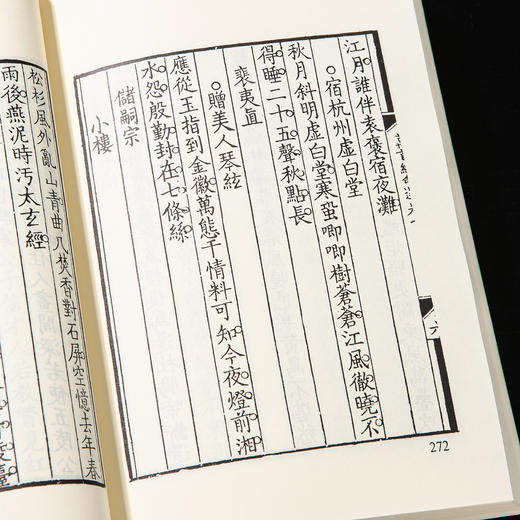 江月誰伴袁褒宿夜灘
○宿杭州虛白堂
秋月斜明虛白堂寒蛩唧唧樹蒼蒼江風徹曉不
得睡二十五聲秋點長
裴夷直
○贈美人琴絃
應從玉指到金徽萬態千情料可知今夜燈前湘
水怨殷勤封在七條絲
儲嗣宗
小樓
松杉風外亂山青曲几焚香對石屏空憶去年春
雨後燕泥時汚太玄經
272